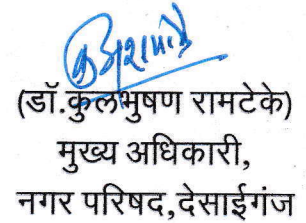 (डॉ.कुलभुषण रामटेके)
मुख्य अधिकारी,
नगर परिषद,देसाईगंज